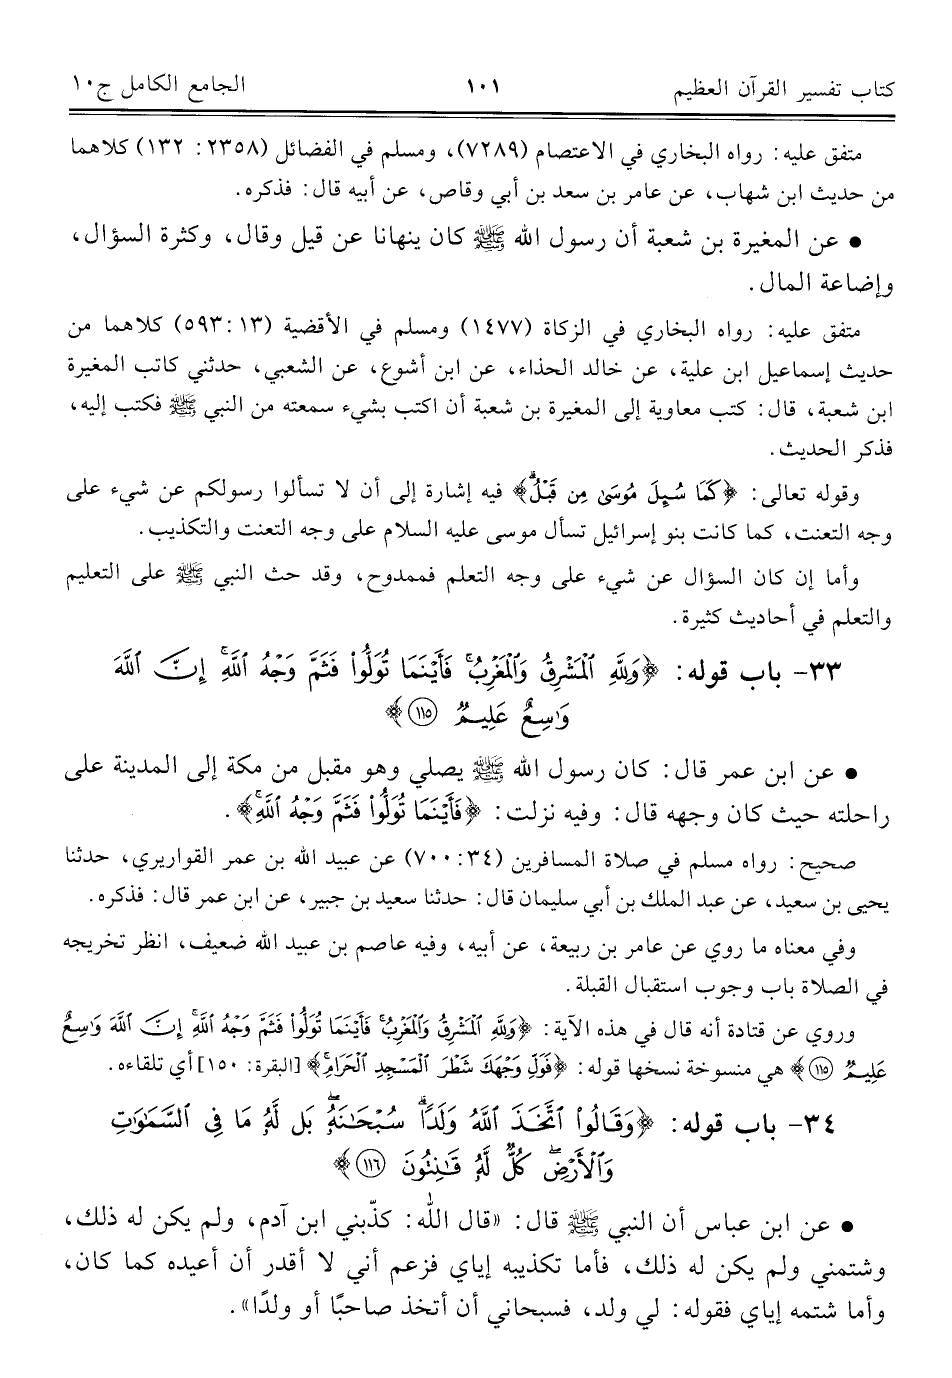 كتاب تفسير القرآن العظيم ١٠١ الجامع الكامل ج١٠
متفق عليه: رواه البخاري في الاعتصام (٧٢٨٩)، ومسلم في الفضائل (٢٣٥٨: ١٣٢) كلاهما
من حديث ابن شهاب، عن عامر بن سعد بن أبي وقاص، عن أبيه قال: فذكره.
• عن المغيرة بن شعبة أن رسول الله ﷺ كان ينهانا عن قيل وقال، وكثرة السؤال،
وإضاعة المال.
متفق عليه: رواه البخاري في الزكاة (١٤٧٧) ومسلم في الأقضية (٥٩٣:١٣) كلاهما من
حديث إسماعيل ابن علية، عن خالد الحذاء، عن ابن أشوع، عن الشعبي، حدثني كاتب المغيرة
ابن شعبة، قال: كتب معاوية إلى المغيرة بن شعبة أن اكتب بشيء سمعته من النبي ﷺ فكتب إليه،
فذكر الحديث.
وقوله تعالى: ﴿كَمَا سُئِلَ مُوسَىٰ مِن قَبْلُۗ﴾ فيه إشارة إلى أن لا تسألوا رسولكم عن شيء على
وجه التعنت، كما كانت بنو إسرائيل تسأل موسى عليه السلام على وجه التعنت والتكذيب.
وأما إن كان السؤال عن شيء على وجه التعلم فممدوح، وقد حث النبي ﷺ على التعليم
والتعلم في أحاديث كثيرة.
٣٣- باب قوله: ﴿وَلِلَّهِ الْمَشْرِقُ وَالْمَغْرِبُۚ فَأَيْنَمَا تُوَلُّوا۟ فَثَمَّ وَجْهُ اللَّهِۚ إِنَّ اللَّهَ
وَٰسِعٌ عَلِيمٌ ١١٥﴾
• عن ابن عمر قال: كان رسول الله ﷺ يصلي وهو مقبل من مكة إلى المدينة على
راحلته حيث كان وجهه قال: وفيه نزلت: ﴿فَأَيْنَمَا تُوَلُّوا۟ فَثَمَّ وَجْهُ اللَّهِۚ﴾.
صحيح: رواه مسلم في صلاة المسافرين (٧٠٠:٣٤) عن عبيد الله بن عمر القواريري، حدثنا
يحيى بن سعيد، عن عبد الملك بن أبي سليمان قال: حدثنا سعيد بن جبير، عن ابن عمر قال: فذكره.
وفي معناه ما روي عن عامر بن ربيعة، عن أبيه، وفيه عاصم بن عبيد الله ضعيف، انظر تخريجه
في الصلاة باب وجوب استقبال القبلة.
وروي عن قتادة أنه قال في هذه الآية: ﴿وَلِلَّهِ الْمَشْرِقُ وَالْمَغْرِبُۚ فَأَيْنَمَا تُوَلُّوا۟ فَثَمَّ وَجْهُ اللَّهِۚ إِنَّ اللَّهَ وَٰسِعٌ
عَلِيمٌ ١١٥﴾ هي منسوخة نسخها قوله: ﴿فَوَلِّ وَجْهَكَ شَطْرَ الْمَسْجِدِ الْحَرَامِۚ﴾ [البقرة: ١٥٠] أي تلقاءه.
٣٤- باب قوله: ﴿وَقَالُوا۟ اتَّخَذَ اللَّهُ وَلَدًاۗ سُبْحَٰنَهُۥۖ بَل لَّهُۥ مَا فِي السَّمَٰوَٰتِ
وَالْأَرْضِۖ كُلٌّ لَّهُۥ قَٰنِتُونَ ١١٦﴾
• عن ابن عباس أن النبي ﷺ قال: «قال الله: كذّبني ابن آدم، ولم يكن له ذلك،
وشتمني ولم يكن له ذلك، فأما تكذيبه إياي فزعم أني لا أقدر أن أعيده كما كان،
وأما شتمه إياي فقوله: لي ولد، فسبحاني أن أتخذ صاحبًا أو ولدًا».